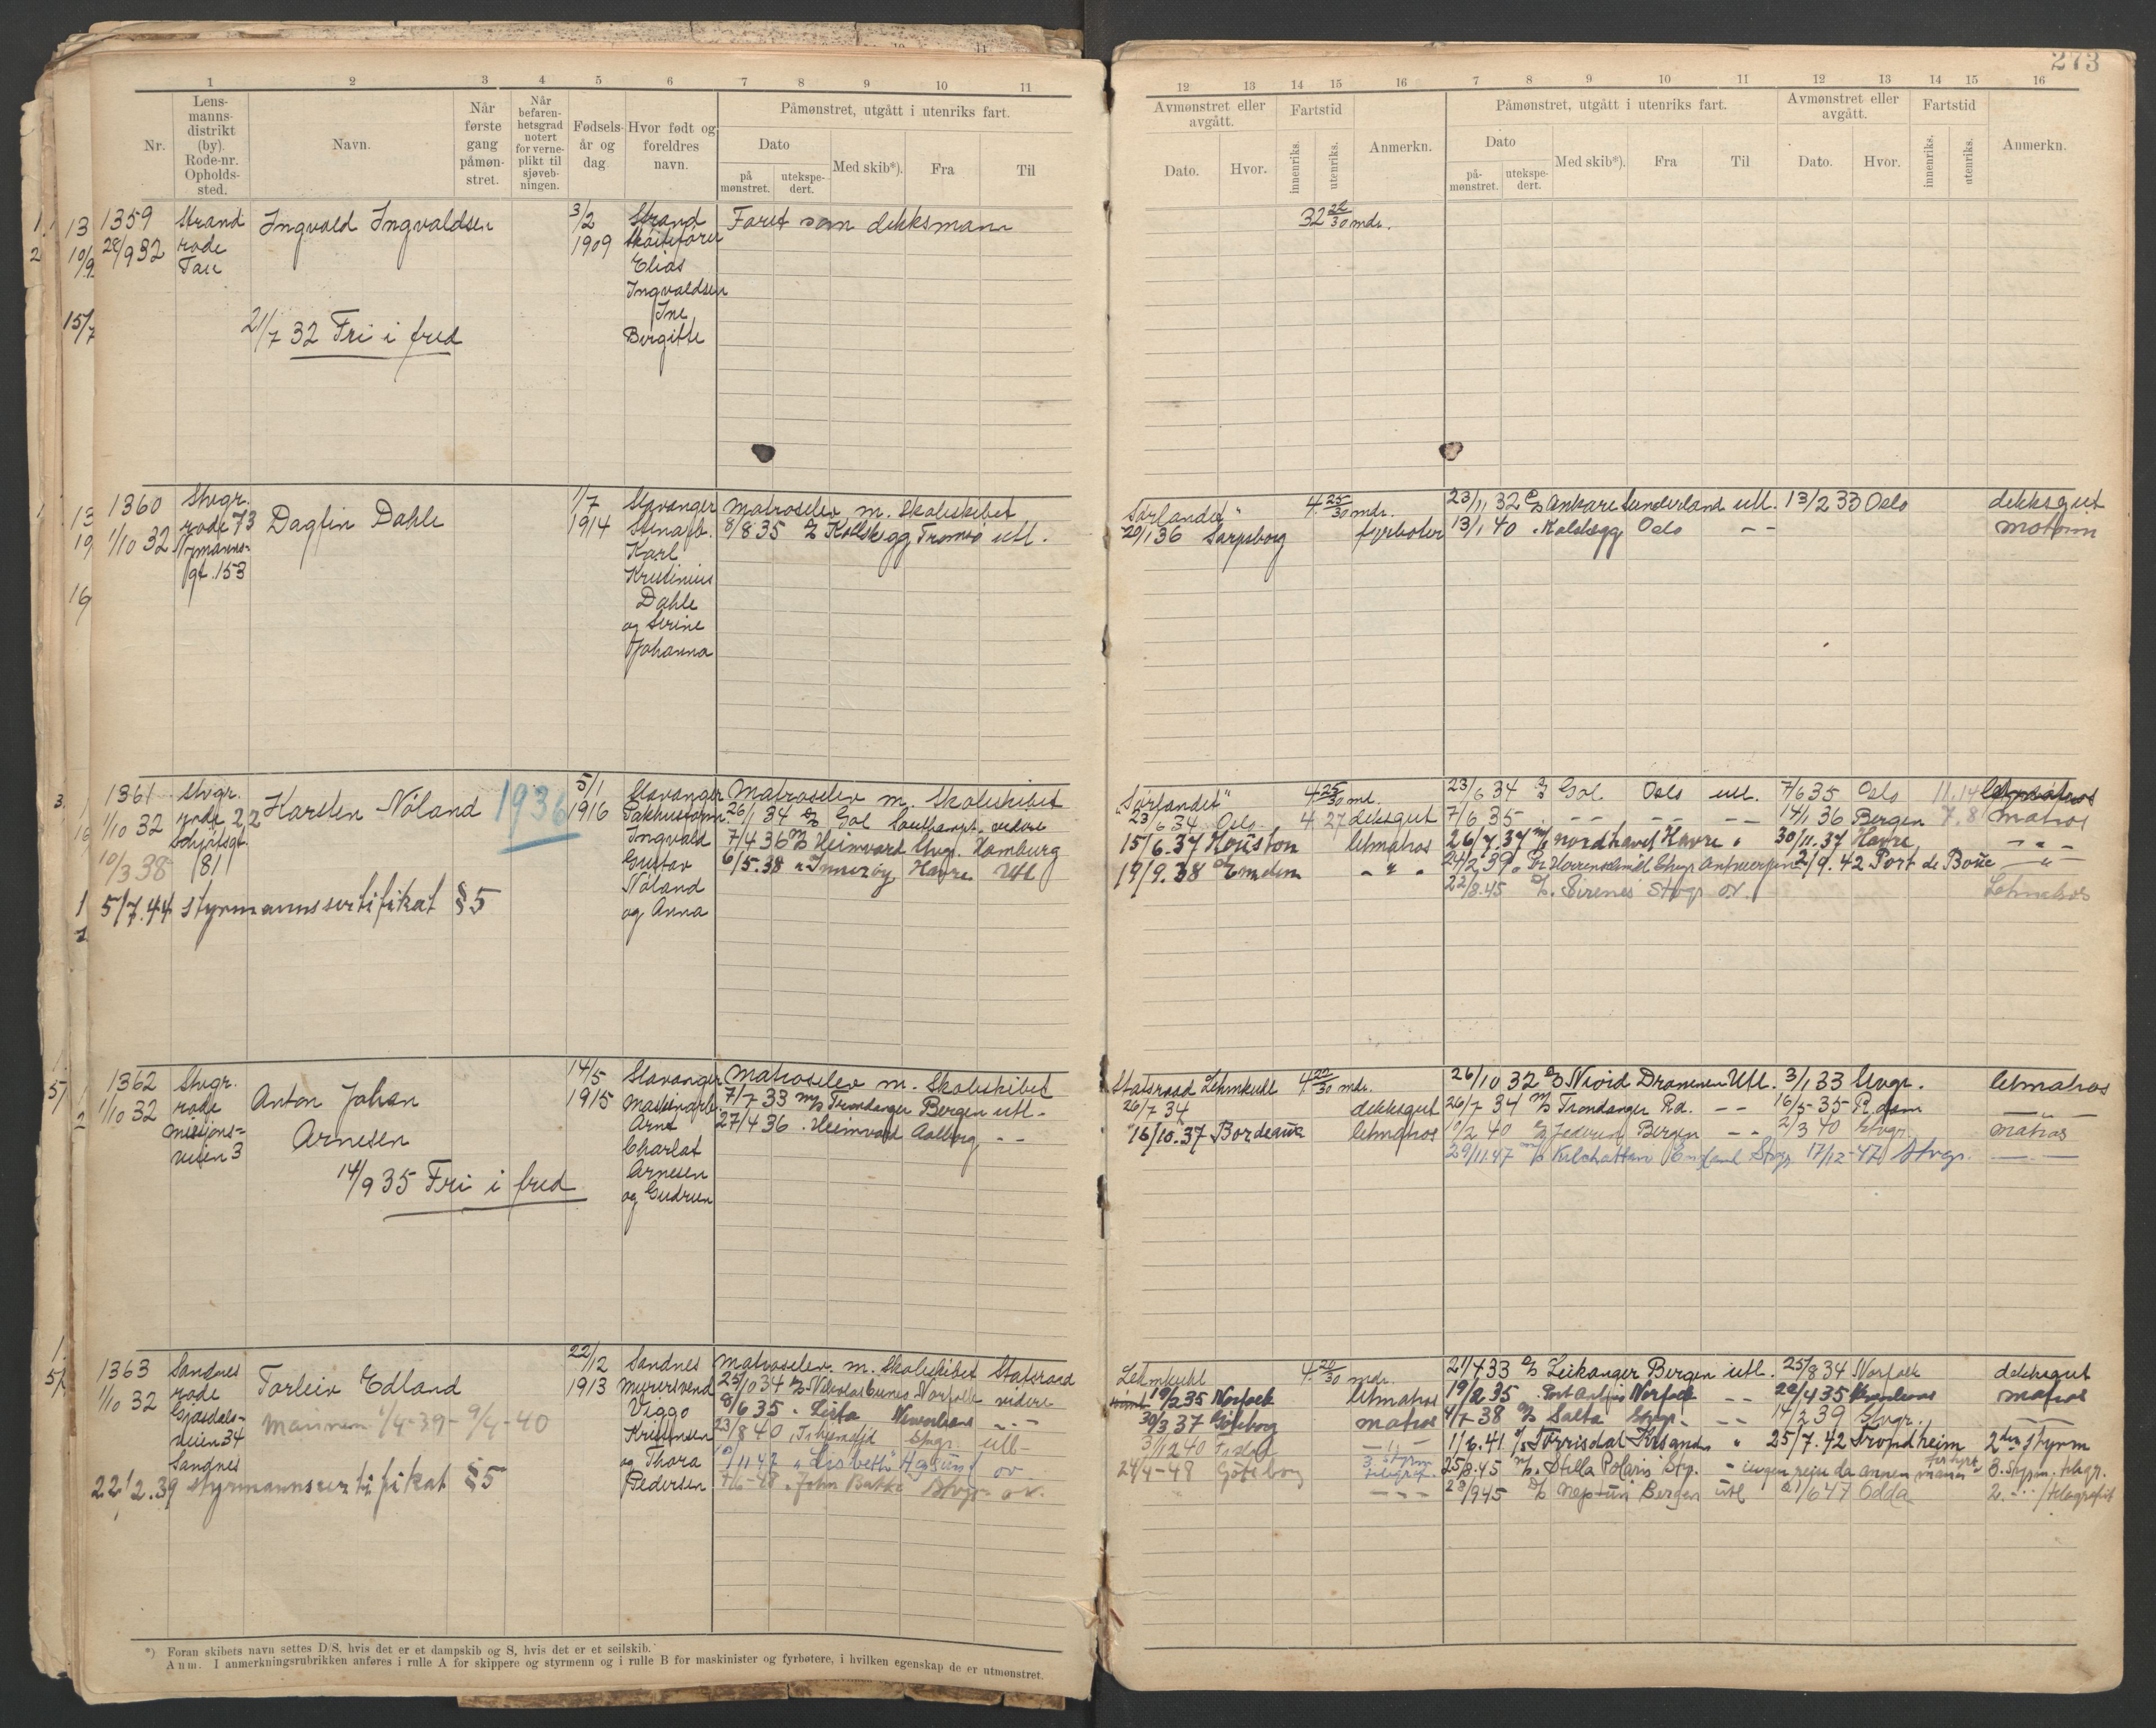 273
1 2 3 4 5 6 7 8 9 10 11
Nr.
Lens-
manns-
distrikt
(by).
Rode-nr.
Opholds-
sted.
Navn.
Når
første
gang
påmøn-
stret.
Når
befaren-
hetsgrad
notert
for verne-
plikt til
sjøveb-
ningen.
Fødsels-
år og
dag
Hvor født og
foreldres
navn.
Påmønstret, utgått i utenriks fart.
Dato
på
mønstret.
utekspe-
dert.
Med skib*).
Fra
Til
12 13 14 15 16 7 8 9 10 11 12 13 14 15 16
Avmønstret eller
avgått.
Dato. Hvor.
Fartstid
innenriks. utenriks.
Anmerkn.
Påmønstret, utgått i utenriks fart.
Dato
på-
mønstret.
utekspe-
dert.
Med skib*).
Fra
Til
Avmønstret eller
avgått.
Dato. Hvor.
Fartstid
innenriks. utenriks.
Anmerkn.
1359
28/9 32
Strand
rode
Tau
Ingvald Ingvaldsen
21/7 32 Fri i fred
3/2
1909
Strand
Skøitefører
Elias
Ingvaldsen
Ine
Bergitte
Faret som dekksmann
32 22/30 mdr.
1360
1/10 32
Stvgr.
rode 73
Nymanns-
gt. 153
Dagfin Dahle
1/7
1914
Stavanger
Karl
Kristinius
Dahle
og Serine
Johanna
Matroselev m. Skoleskibet
8/8 35 Kollskegg Tromsø utl.
Sørlandet" 4 25/30 mdr.
20/1 36 Sarpsborg fyrbøter
23/11 32 Ankare Sunderland utl. 13/2 33 Oslo dekksgut
13/1 40 Kolskegg Oslo - - motorm
1361
1/10 32
10/3 38
Stvgr.
rode 22
Schjøtsgt.
81
Karsten Nóland 1936
5/7.44 Styrmannssertifikat §5
5/1
1916
Stavanger
Pakhusform.
Ingvald
Gustav
Nóland
og Anna
Matroselev m. Skoleskibet
26/1 34 Gol Southampt. videre
7/4 36 Heimvard Stvgr. Hamburg
6/5.38 Innerøy Havre Utl
Sørlandet" 4 25/30 md.
23/6 34 Oslo 4 27 dekksgut
15/6.37 Houston letmatros
19/9.38 Emden " " "
23/6 34 Gol Oslo utl. 7/6 35 Oslo 11.14
7/6 35 - - - - 14/1 36 Bergen 7.8 matros
26/7.37 Nordhavet Havre " 30/11.37 Havre - " -
24/2 39 Stvgr Antwerpen 2/9.42 Port de Bouc - " -
22/8.45 Sirenes Stvgr ov. Letmatros
1362
1/10 32
Stvgr.
rode
Misjons=
veien 3
Anton Johan
Arnesen
14/9 35 Fri i fred
14/5
1915
Stavanger
Maskinarb.
Arne
Charlot
Arnesen
og Gudrun
Matroselev m. Skoleskibet
7/7 33 Trondanger Bergen utl -
27/4 36 Heimvard Aalborg - -
Statsraad Lehmkuhl 4 20/30 mdr.
26/7 34 dekksgut
16/10.37 Bordeaux letmatros
26/10 32 Njord Drammen Utl. 3/1 33 Stvgr. letmatros
26/7 34 Trondanger Rd. - - 16/5-35 R.dam - " -
2 40 Jederen Bergen - - 2/3 40 Stvgr. matros
29/11.47 Kilchattan England Stvgr 17/12-47 Stvgr. - -
1363
1/10 32
Sandnes
rode
Gjæsdals-
veien 34
Sandnes
Torleiv Edland
Marinen 1/4-39 - 9/4-40
22/2.39 Styrmannssertifikat §5
22/12
1913
Sandnes
Murersvend
Viggo
Kristensen
og Thora
Pedersen
Matroselev m. Skoleskibet Statsraad
25/10 34 Norfolk videre
8/6 35 Lista - " -
23/8 40 Stvgr. utl -
11 47 "Lisbeth" ov
7/6-48 John Bakke Stvgr ov.
Lehmkuhl 4 20/30 mdr.
19/2 35 Norfolk letmatros
30/3 37 Göteborg matros
3/12 40
24/4-48 Göteborg
21/4 33 Leikanger Bergen utl. 25/8 34 Norfolk dekksgut
19/2.35 Norfolk - - 22/4 35 matros
4/7 38 Salta Stvgr. - - 14/2 39 Stvgr.
1/6.41 Torrisdal Krsand " 25/7.42 Trondheim 2den styrm
25/8.45 Stella Polaris Stv. 3. Styrm. telegr.
28/9 45 Neptun Bergen utl 21/6 47 Odda 2. /telegrafist
*) Foran skibets navn settes D/S, hvis det er et dampskib og S, hvis det er et seilskib.
Anm. I anmerkningsrubrikken anføres i rulle A for skippere og styrmenn og i rulle B for maskinister og fyrbøtere, i hvilken egenskap de er utmønstret.